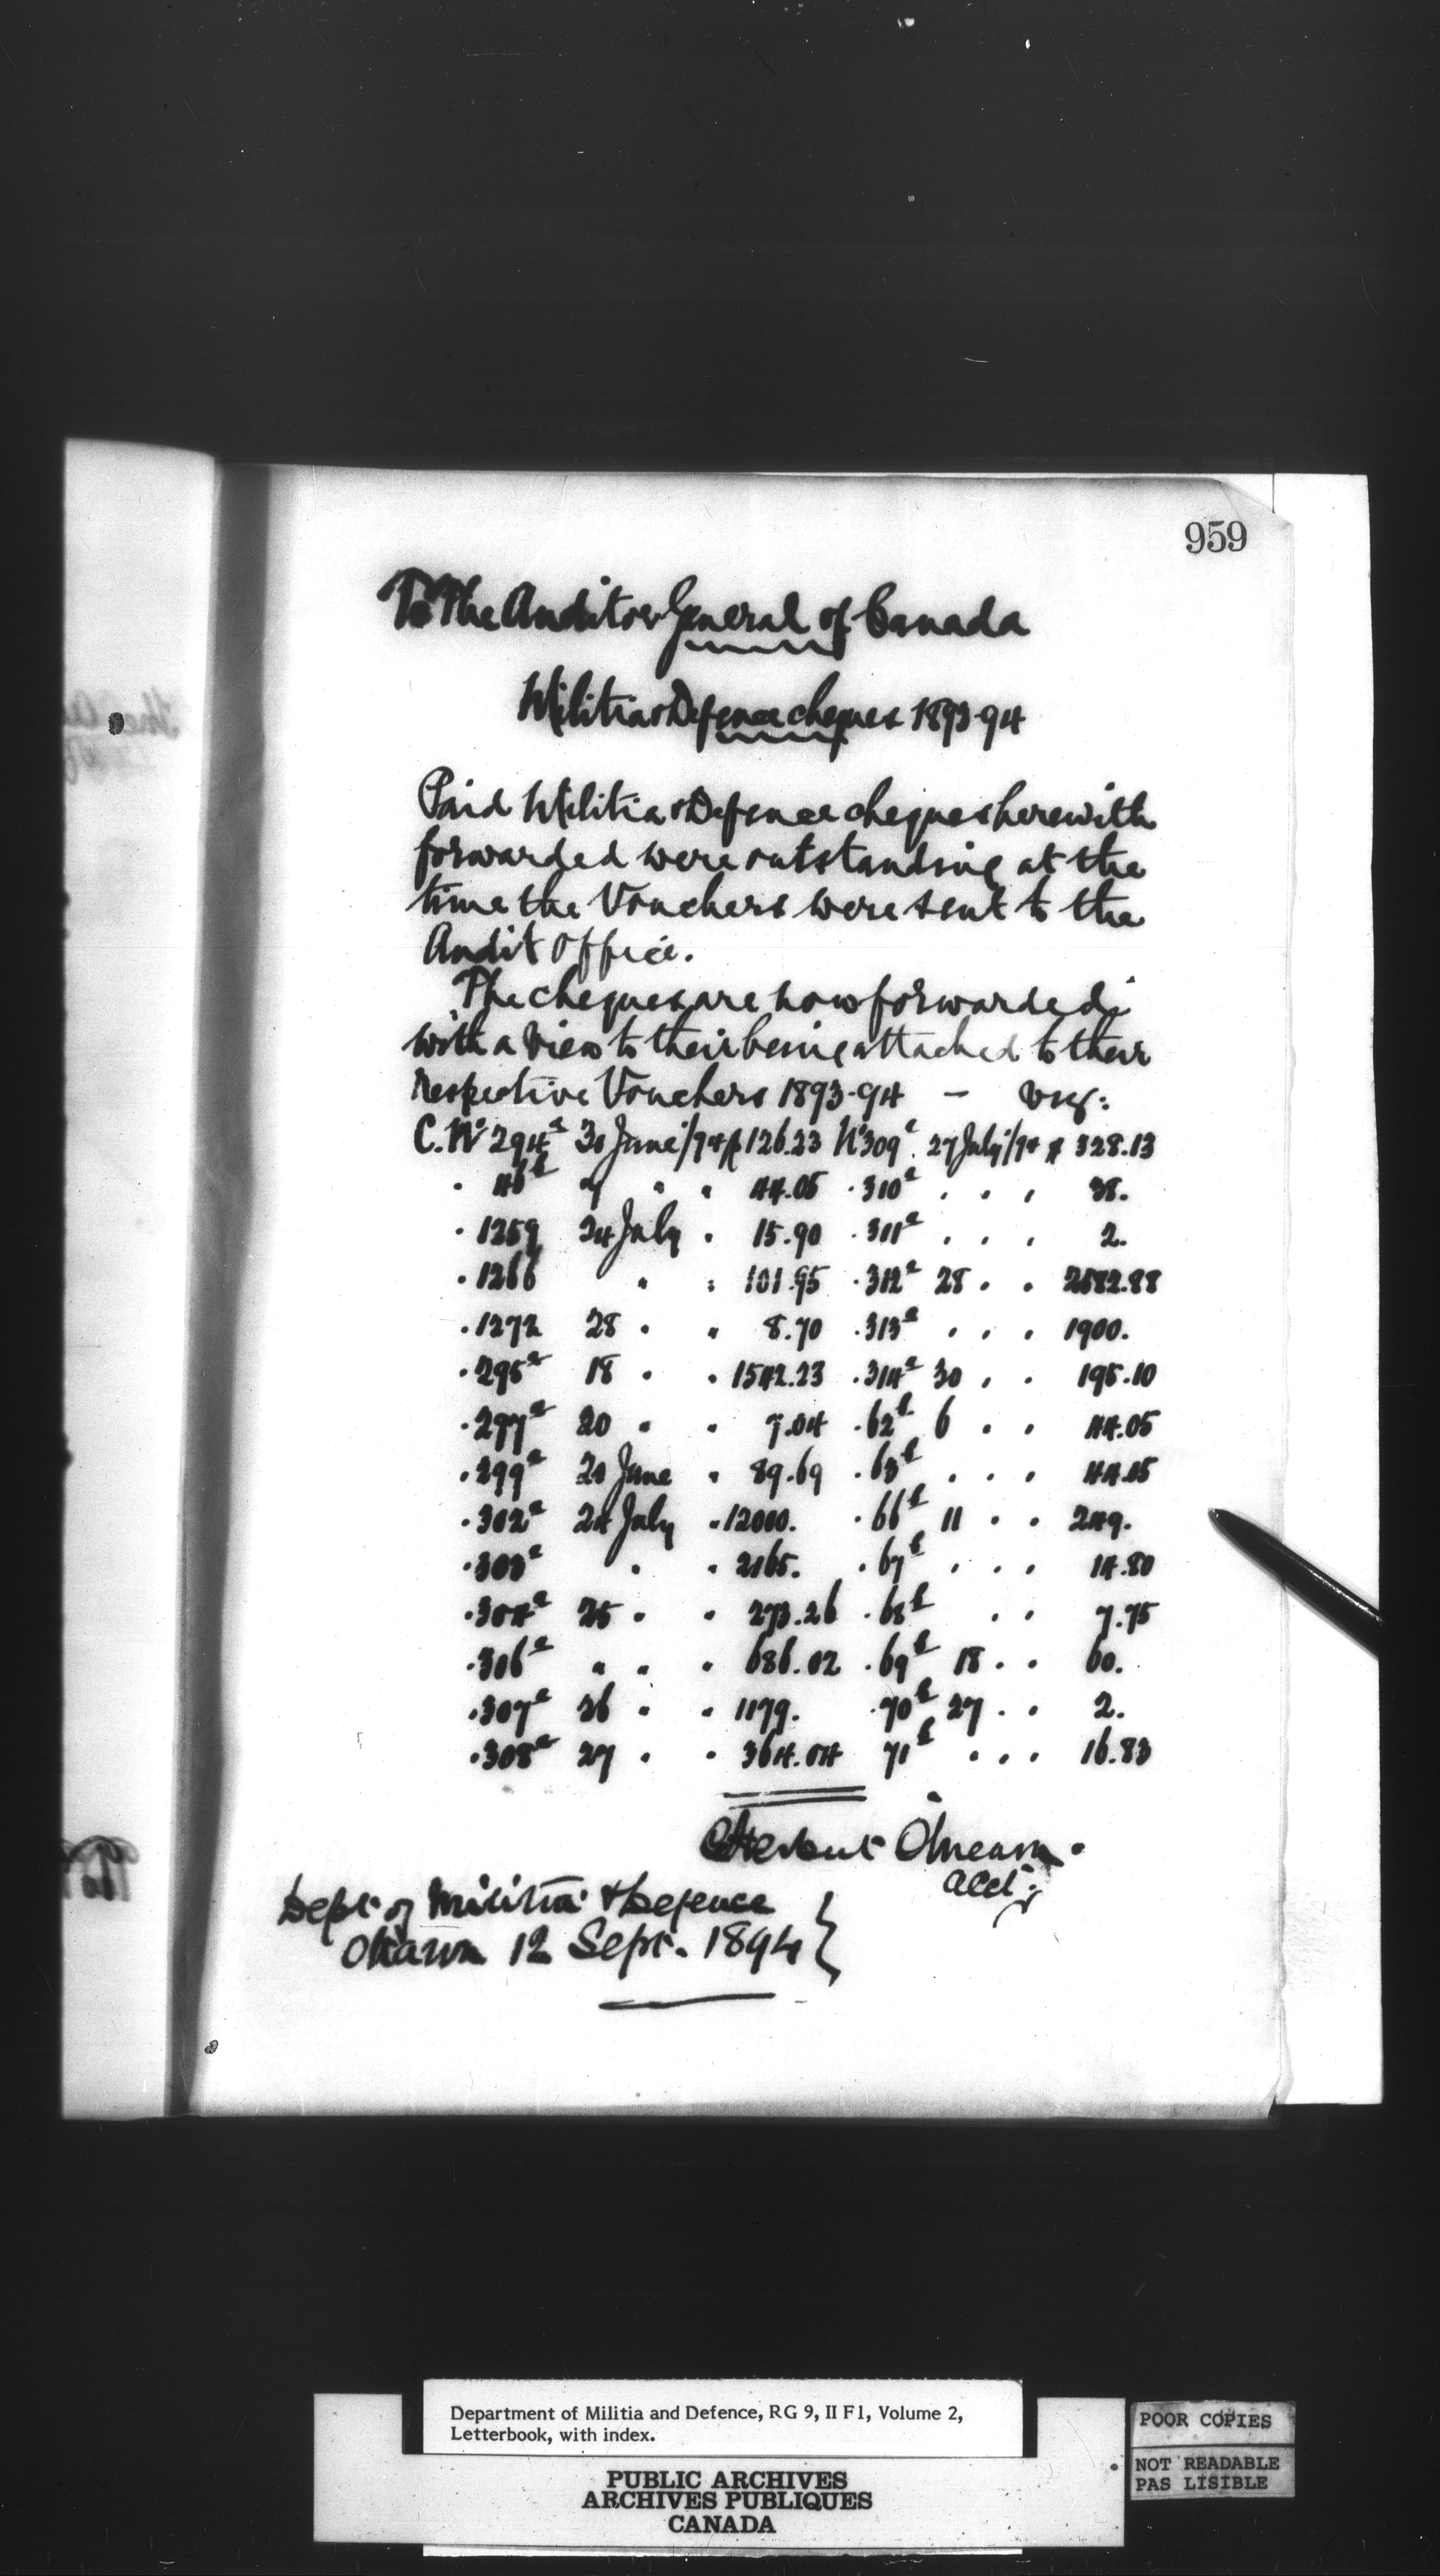 959
To The Auditor General of Canada
Militia & Defence cheques 1893-94
Paid Militia & Defence cheques herewith
forwarded were outstanding at the
time the Vouchers were sent to the
Audit Office.
The cheques are now forwarded
with a view to their being attached to their
respective Vouchers 1893-94 — viz:
C. No 294a 30 June/94 $126.23 No 309a. 27 July/94 $ 328.13
. 46b " " " 44.05 . 310a . . . 38.
. 1259 24 July . 15.90 . 311a . . . 2.
. 1266 " : 101.95 . 312a 28 . . 2582.88
. 1272 28 . " 8.70 . 313a . . . 1900.
. 295a 18 . . 1542.23 . 314a 30 . . 195.10
. 297a 20 . . 7.04 . 62b 6 . . 44.05
. 299a 20 June . 89.69 . 63b . . . 44.05
. 302a 24 July . 12000. . 66b 11 . . 249.
. 303a . . 2165. . 67b . . . 14.80
. 304a 25 . . 273.26 . 68b . . 7.75
. 306a " . . 686.02 . 69b 18 . . 60.
. 307a 26 . . 1179. . 70b 27 . . 2.
. 308a 27 . . 364.04 71b . . . 16.83
Omeara.
acct.
Dept. of Militia & Defence
Ottawa 12 Sept. 1894
Department of Militia and Defence, RG 9, II F1, Volume 2,
Letterbook, with index.
PUBLIC ARCHIVES
ARCHIVES PUBLIQUES
CANADA
POOR COPIES
NOT READABLE
PAS LISIBLE